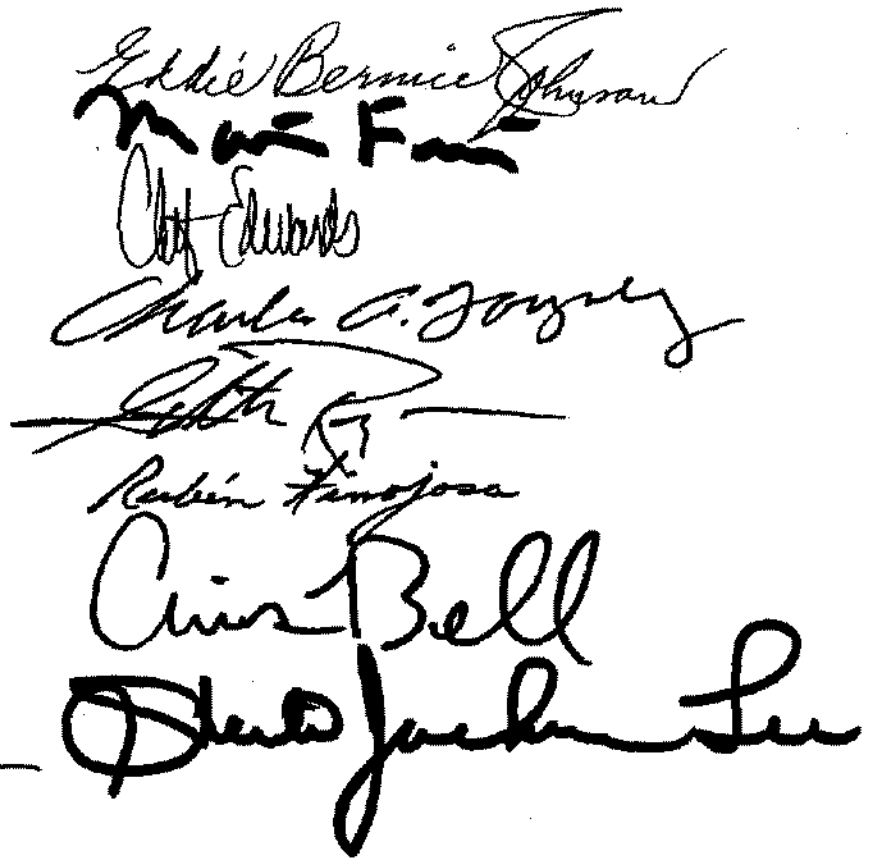 Eddie Bernice Johnson
Martin Frost
Chet Edwards
Charles A. Gonzalez
Rubén Hinojosa
Chris Bell
Sheila Jackson Lee